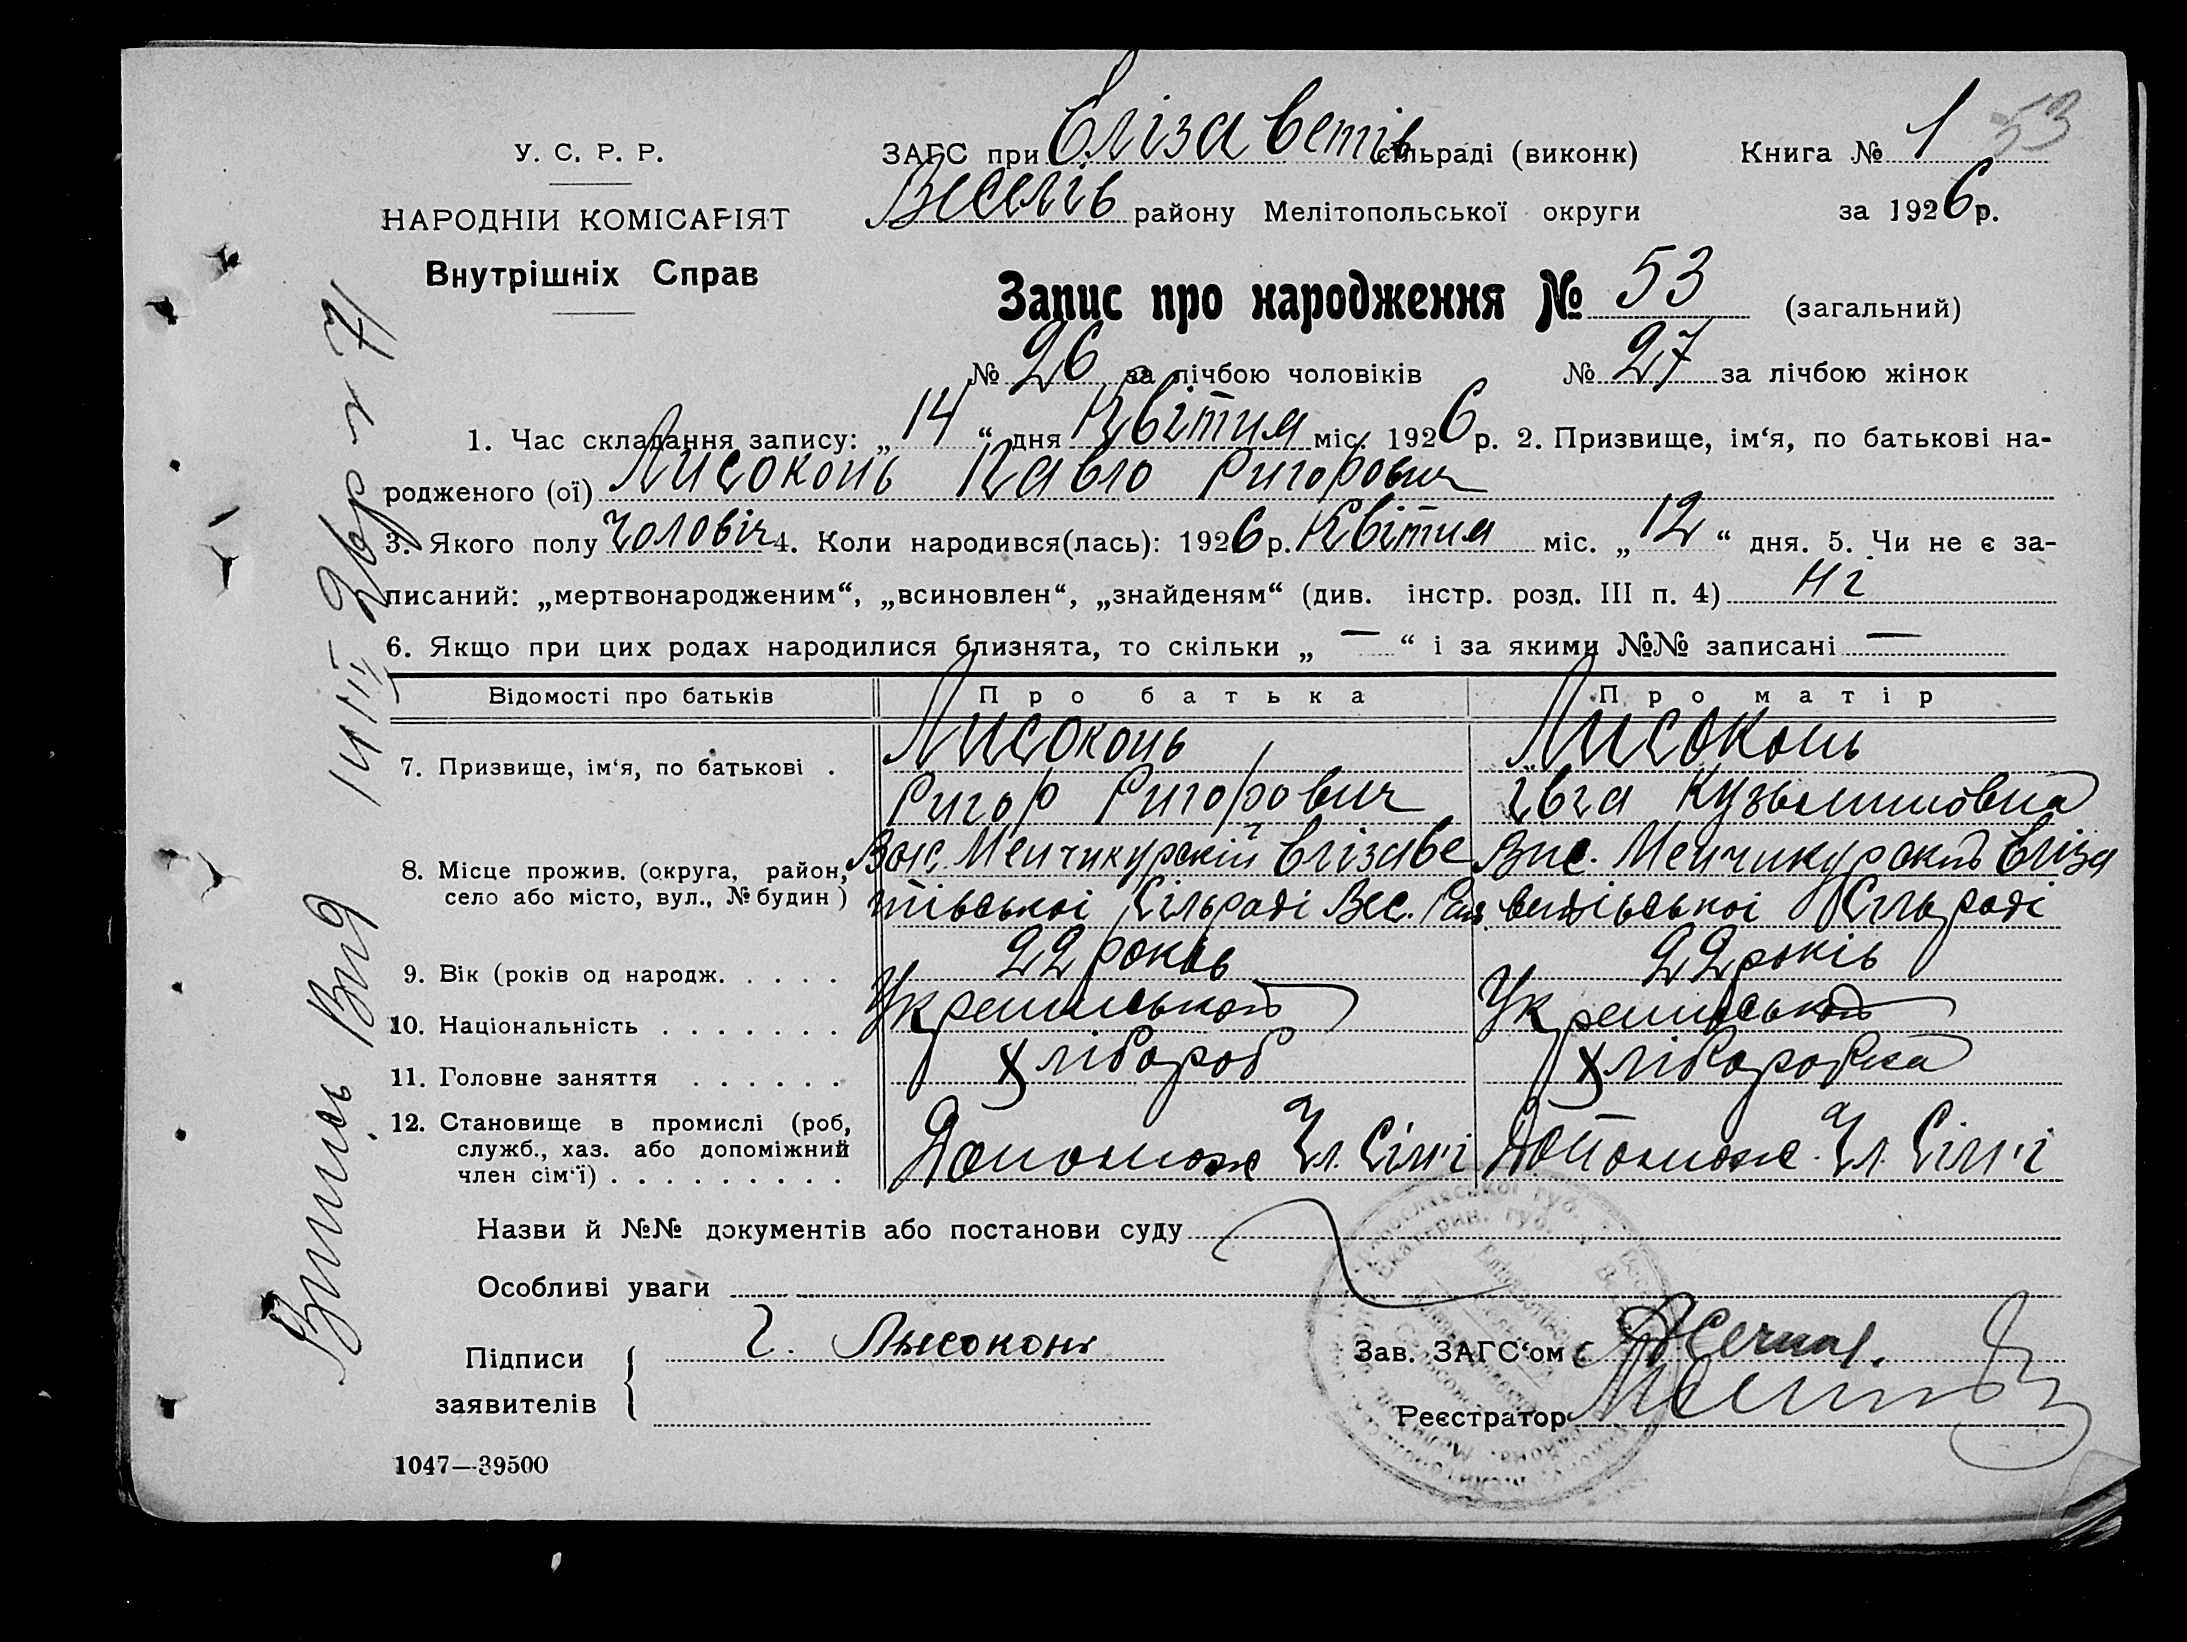 У. С. Р. Р.
НАРОДНІЙ КОМІСАРІЯТ
Внутрішніх Справ
ЗАГС при Єлізаветів сільраді (виконк) Книга № 1 53
Веселів району Мелітопольської округи за 1926 р.
Запис про народження № 53 (загальний)
№ 26 за лічбою чоловіків № 27 за лічбою жінок
1. Час складання запису: „14“ дня Квітня міс. 1926 р. 2. Призвище, ім‘я, по батькові на-
родженого (ої) Лисоконь Павло Ригорович
3. Якого полу чоловіч 4. Коли народився(лась): 1926 р. Квітня міс. „12“ дня. 5. Чи не є за-
писаний: „мертвонародженим“, „всиновлен“, „знайденям“ (див. інстр. розд. III п. 4) Ні
6. Якщо при цих родах народилися близнята, то скільки „ — “ і за якими №№ записані —
Відомості про батьків Про батька Про матір
7. Призвище, ім‘я, по батькові . Лисоконь Лисоконь
Ригор Ригорович Івга Кузьминовна
8. Місце прожив. (округа, район, Менчикурскій Єлізаве Менчикурскій Єліза
село або місто, вул., № будин) тівської Сільраді Вес. Рай. ветівської Сільраді
9. Вік (років од народж. . . . . 22 років 22 років
10. Національність . . . . . . .
11. Головне заняття . . . . . . Хлібороб Хліборобка
12. Становище в промислі (роб,
служб., хаз. або допоміжний Допомож Чл. Сім'і Допомож. Чл. Сім'і
член сім‘ї) . . . . . . . . . .
Назви й №№ документів або постанови суду
Особливі уваги
Підписи Г. Лысоконь Зав. ЗАГС‘ом
заявителів Реєстратор
1047—39500
Випись